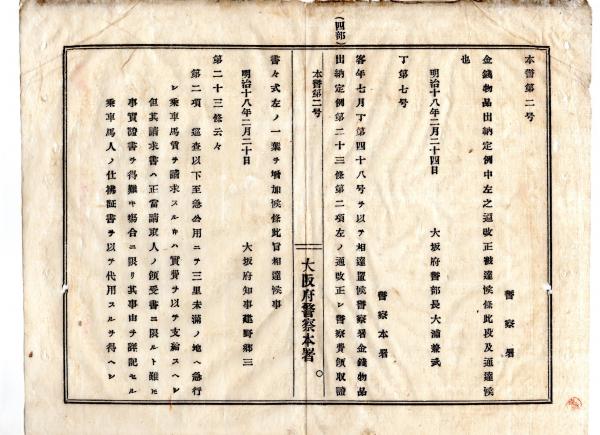 本警第二号
警察署
金錢物品出納定例中左之通改正被達候條此段及通達候
也
明治十八年二月二十四日
大坂府警部長大浦兼武
警察本署
丁第七号
客年七月丁第四十八号ヲ以テ相達置候警察署金錢物品
出納定例第二十三條第二項左ノ通改正シ警察費領収證
(四部)
本警第二号
大阪府警察本署
書々式左ノ一葉ヲ增加候條此旨相達候事
明治十八年二月二十日
大坂府知事建野郷三
第二十三條云々
第二項 巡査以下至急公用ニテ三里未満ノ地ヘ急行
シ乘車馬賃ヲ請求スルトキハ實費ヲ以テ支給スヘシ
但其請求書ハ正當請取人ノ領受書ニ限ルト雖モ
事實證書ヲ得難キ塲合ニ限リ其事由ヲ詳記セル
乘車馬人ノ仕拂証書ヲ以テ代用スルヲ得ヘシ